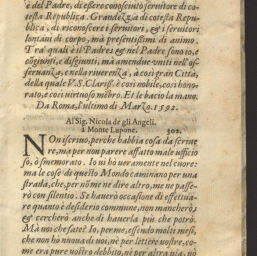 è del Padre, di essere conosciuto servitore di co-
testa Republica. Grandezza di cotesta Repu-
blica, di riconoscere i servitori, & i servitori
lontani di corpo, mà presentissimi di animo.
Trà quali è il Padre; & nel Padre sono io, e
cōgiunti, e disgiunti, mà amendue vniti nell'os-
seruanza, e nella riuerenza, à così gran Città,
della quale V.S. Clariss. è così nobile, così hono-
rato, e così virtuoso mēbro. Et le bacio la mano.
Da Roma, l'ultimo di Marzo. 1592.
Al Sig. Nicola de gli Angeli.
à Monte Lupone. 302.
Non scriuo, perche habbia cosa da scriue
re, ma per non parere affatto male ufficio
so, ò smemorato. Io ni hò ueramente nel cuore:
ma le cose di questo Mondo caminano per una
strada, che, per nō me ne dire altro, me ne passe-
rò con silentio. Se hauerò occasione di effettua-
re quanto è desiderio commune, non mancherò,
& cercherò anche di hauerla più che potrò.
Mà uoi che fate? Io, per me, essendo molti mesi,
che non hò nuoua di uoi, nè per lettere uostre, co-
me era pure uostro debito, nè per altra uia, nò